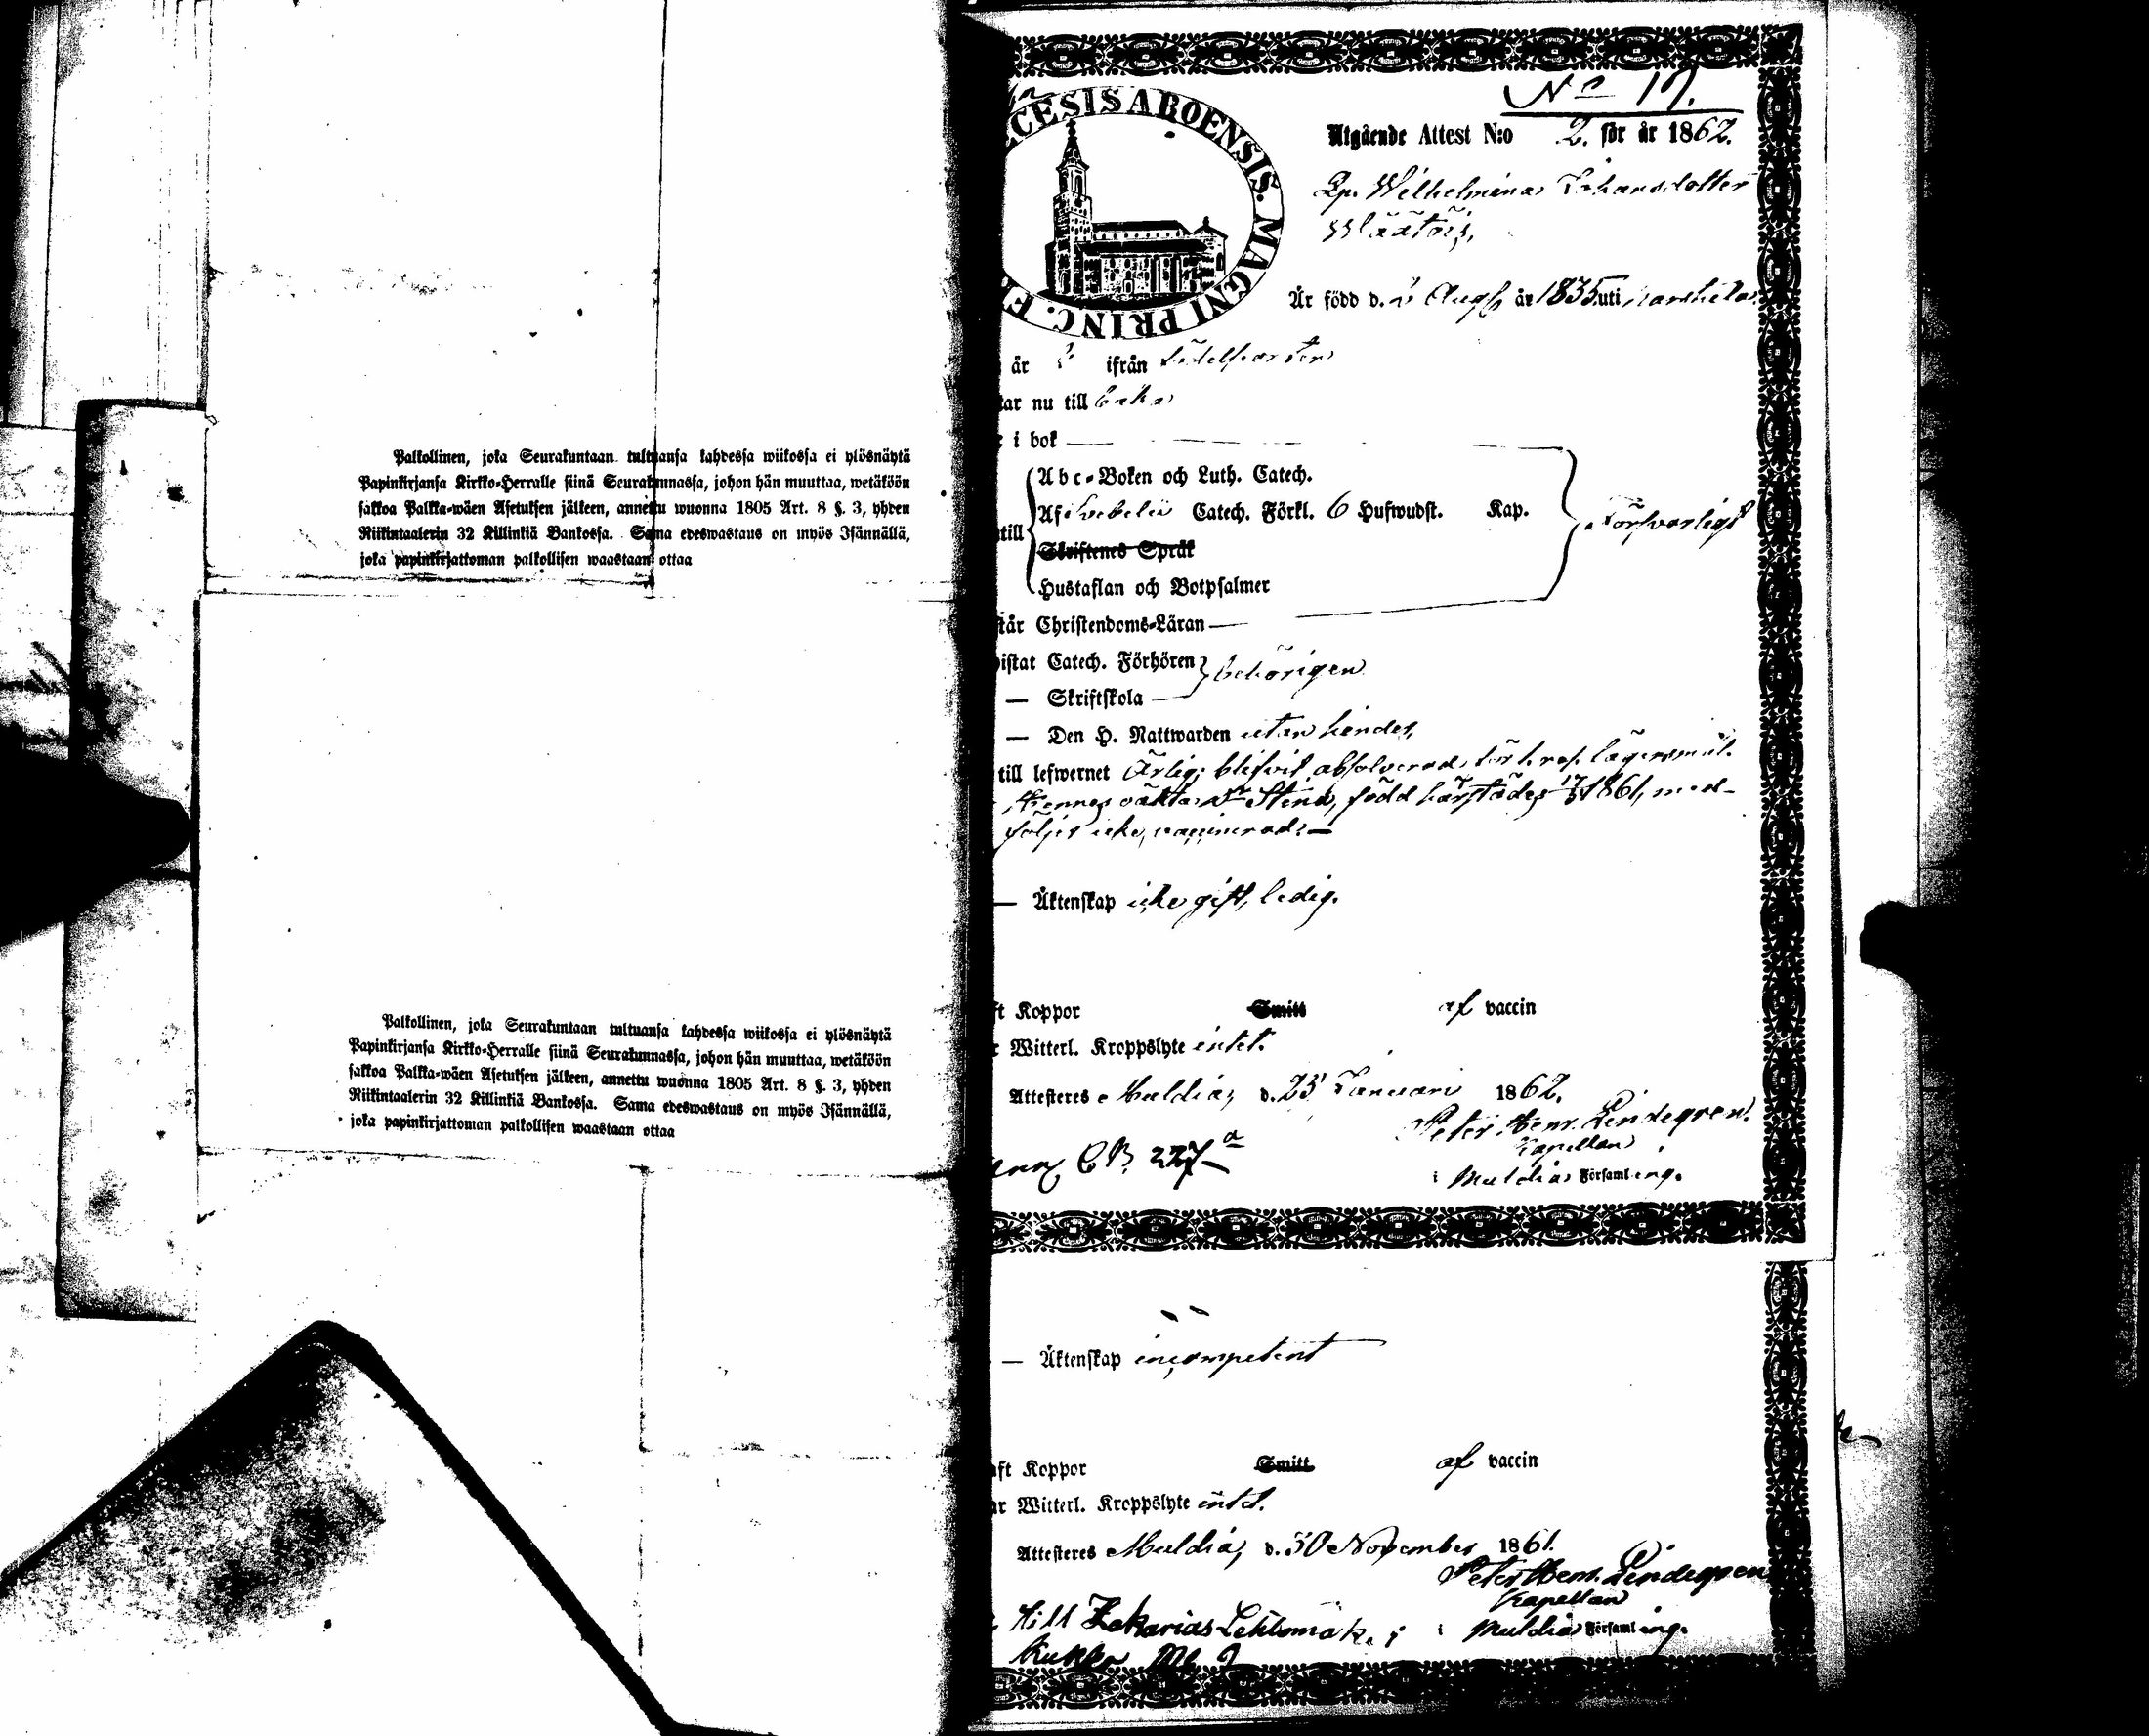 Palkollinen, joka Seurakuntaan tultuansa kahdessa wiikossa ei ylösnäytä
Papinkirjansa Kirkko-Herralle siinä Seurakunnassa, johon hän muuttaa, wetäköön
sakkoa Palkka-wäen Asetuksen jälkeen, annettu wuonna 1805 Art. 8 §. 3, yhden
Riikintaalerin 32 Killinkiä Bankossa. Sama edeswastaus on myös Isännällä,
joka papinkirjattoman palkollisen waastaan ottaa
Palkollinen, joka Seurakuntaan tultuansa kahdessa wiikossa ei ylösnäytä
Papinkirjansa Kirkko-Herralle siinä Seurakunnassa, johon hän muuttaa, wetäköön
sakkoa Palkka-wäen Asetuksen jälkeen, annettu wuonna 1805 Art. 8 §. 3, yhden
Riikintaalerin 32 Killinkiä Bankossa. Sama edeswastaus on myös Isännällä,
joka papinkirjattoman palkollisen waastaan ottaa
CESIS ABOENSIS. MAGNI PRINC. F
No 17.
Utgående Attest N:o 2. för år 1862.
Wilhelmina Johansdotter
Är född d. Aug. år 1835 uti
år ifrån
tar nu till
i bok
Abc-Boken och Luth. Catech.
Af Svebelii Catech. Förkl. 6 Hufwudst. Kap.
till Försvarligt
Skriftenes Språk
Hustaflan och Botpsalmer
står Christendoms-Läran
istat Catech. Förhören behörigen
— Skriftskola
— Den H. Nattwarden utan hinder,
till lefwernet Ärlig; blifvit absolverad för lägersmål.
Hennes oäkta Stina, född härstädes 1861, med-
följer icke, vaccinerad. —
— Äktenskap icke gift, ledig.
ft Koppor Smitt af vaccin
r Witterl. Kroppslyte intet.
Attesteres Muldia, d. 25 Januari 1862.
Peter Henr. Lindegren.
Kapellan
i Muldia Församling.
CB. 227 a
— Äktenskap incompetent
ft Koppor Smitt af vaccin
ar Witterl. Kroppslyte intet.
Attesteres Muldia, d. 30 November 1861.
Peter Henr. Lindegren
Kapellan
i Muldia Församling.
till Zekarias Lehtomäki i
Kukko